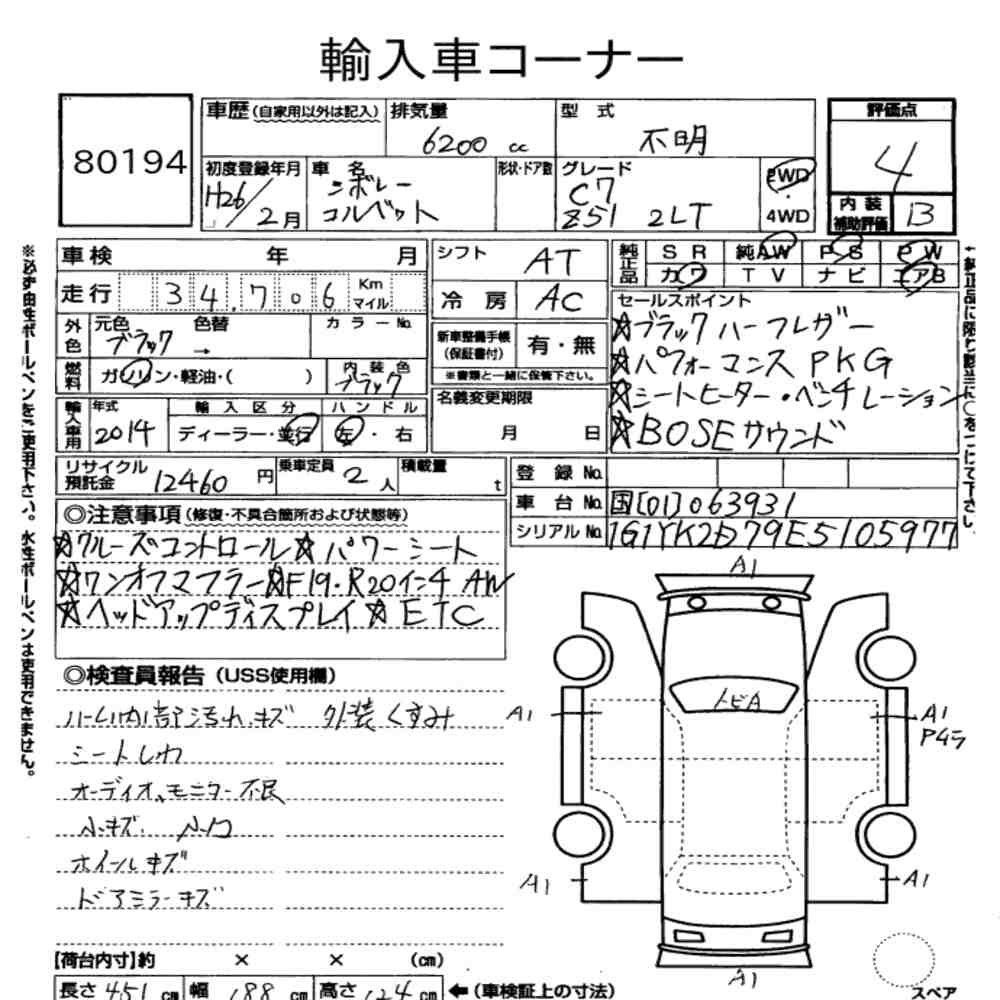 輸入車コーナー
80194
車歴 (自家用以外は記入) 排気量 6200 cc 型式 不明
初度登録年月 H26/2月 車名 シボレー コルベット 形状・ドア数 グレード C7 Z51 2LT 2WD・4WD
評価点 4
内装補助評価 B
車検 年 月
走行 34,706 Km マイル
外色 元色 ブラック 色替 → カラーNo.
燃料 ガソリン・軽油・( ) 内装色 ブラック
輸入車用 年式 2014 輸入区分 ディーラー・並行 ハンドル 左・右
シフト AT
冷房 AC
新車整備手帳(保証書付) 有・無
※書類と一緒に保管下さい。
名義変更期限 月 日
純正品 SR 純AW PS PW
カワ TV ナビ エアB
セールスポイント
☆ブラックハーフレザー
☆パフォーマンスPKG
☆シートヒーター・ベンチレーション
☆BOSEサウンド
リサイクル預託金 12460円 乗車定員 2人 積載量 t
登録No.
車台No. 国[01]063931
シリアルNo. 1G1YK2D79E5105977
◎注意事項(修復・不具合箇所および状態等)
☆クルーズコントロール☆パワーシート
☆ワンオフマフラー☆F19・R20インチAW
☆ヘッドアップディスプレイ☆ETC
◎検査員報告(USS使用欄)
内部汚れキズ 外装くすみ
シートしわ
オーディオ、モニター不良
小キズ、小凹
ホイールキズ
ドアミラーキズ
A1
トビA
A1
A1
P45
A1
A1
A1
スペア
【荷台内寸】約 × × (cm)
長さ 451 cm 幅 188 cm 高さ 124 cm ←(車検証上の寸法)
※必ず油性ボールペンをご使用下さい。水性ボールペンは使用できません。
↑純正品に限り該当に○をつけて下さい。